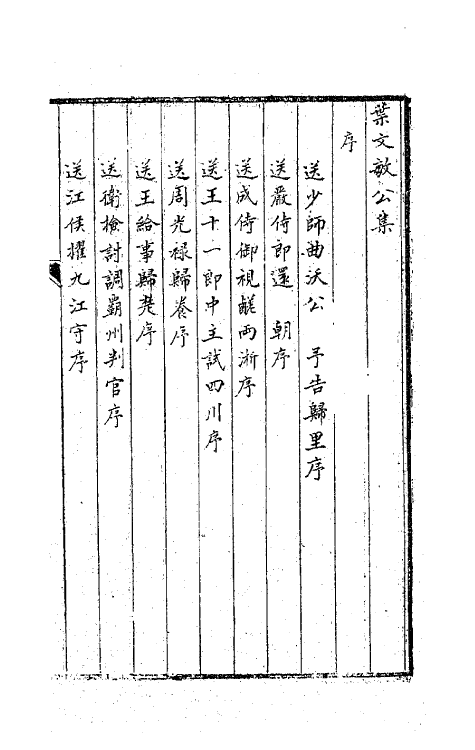 葉文敏公集
序
送少師曲沃公　予告歸里序
送嚴侍郎還　朝序
送成侍御視鹺兩浙序
送王十一郎中主試四川序
送周光祿歸養序
送王給事歸養序
送衛檢討調霸州判官序
送江侯擢九江守序